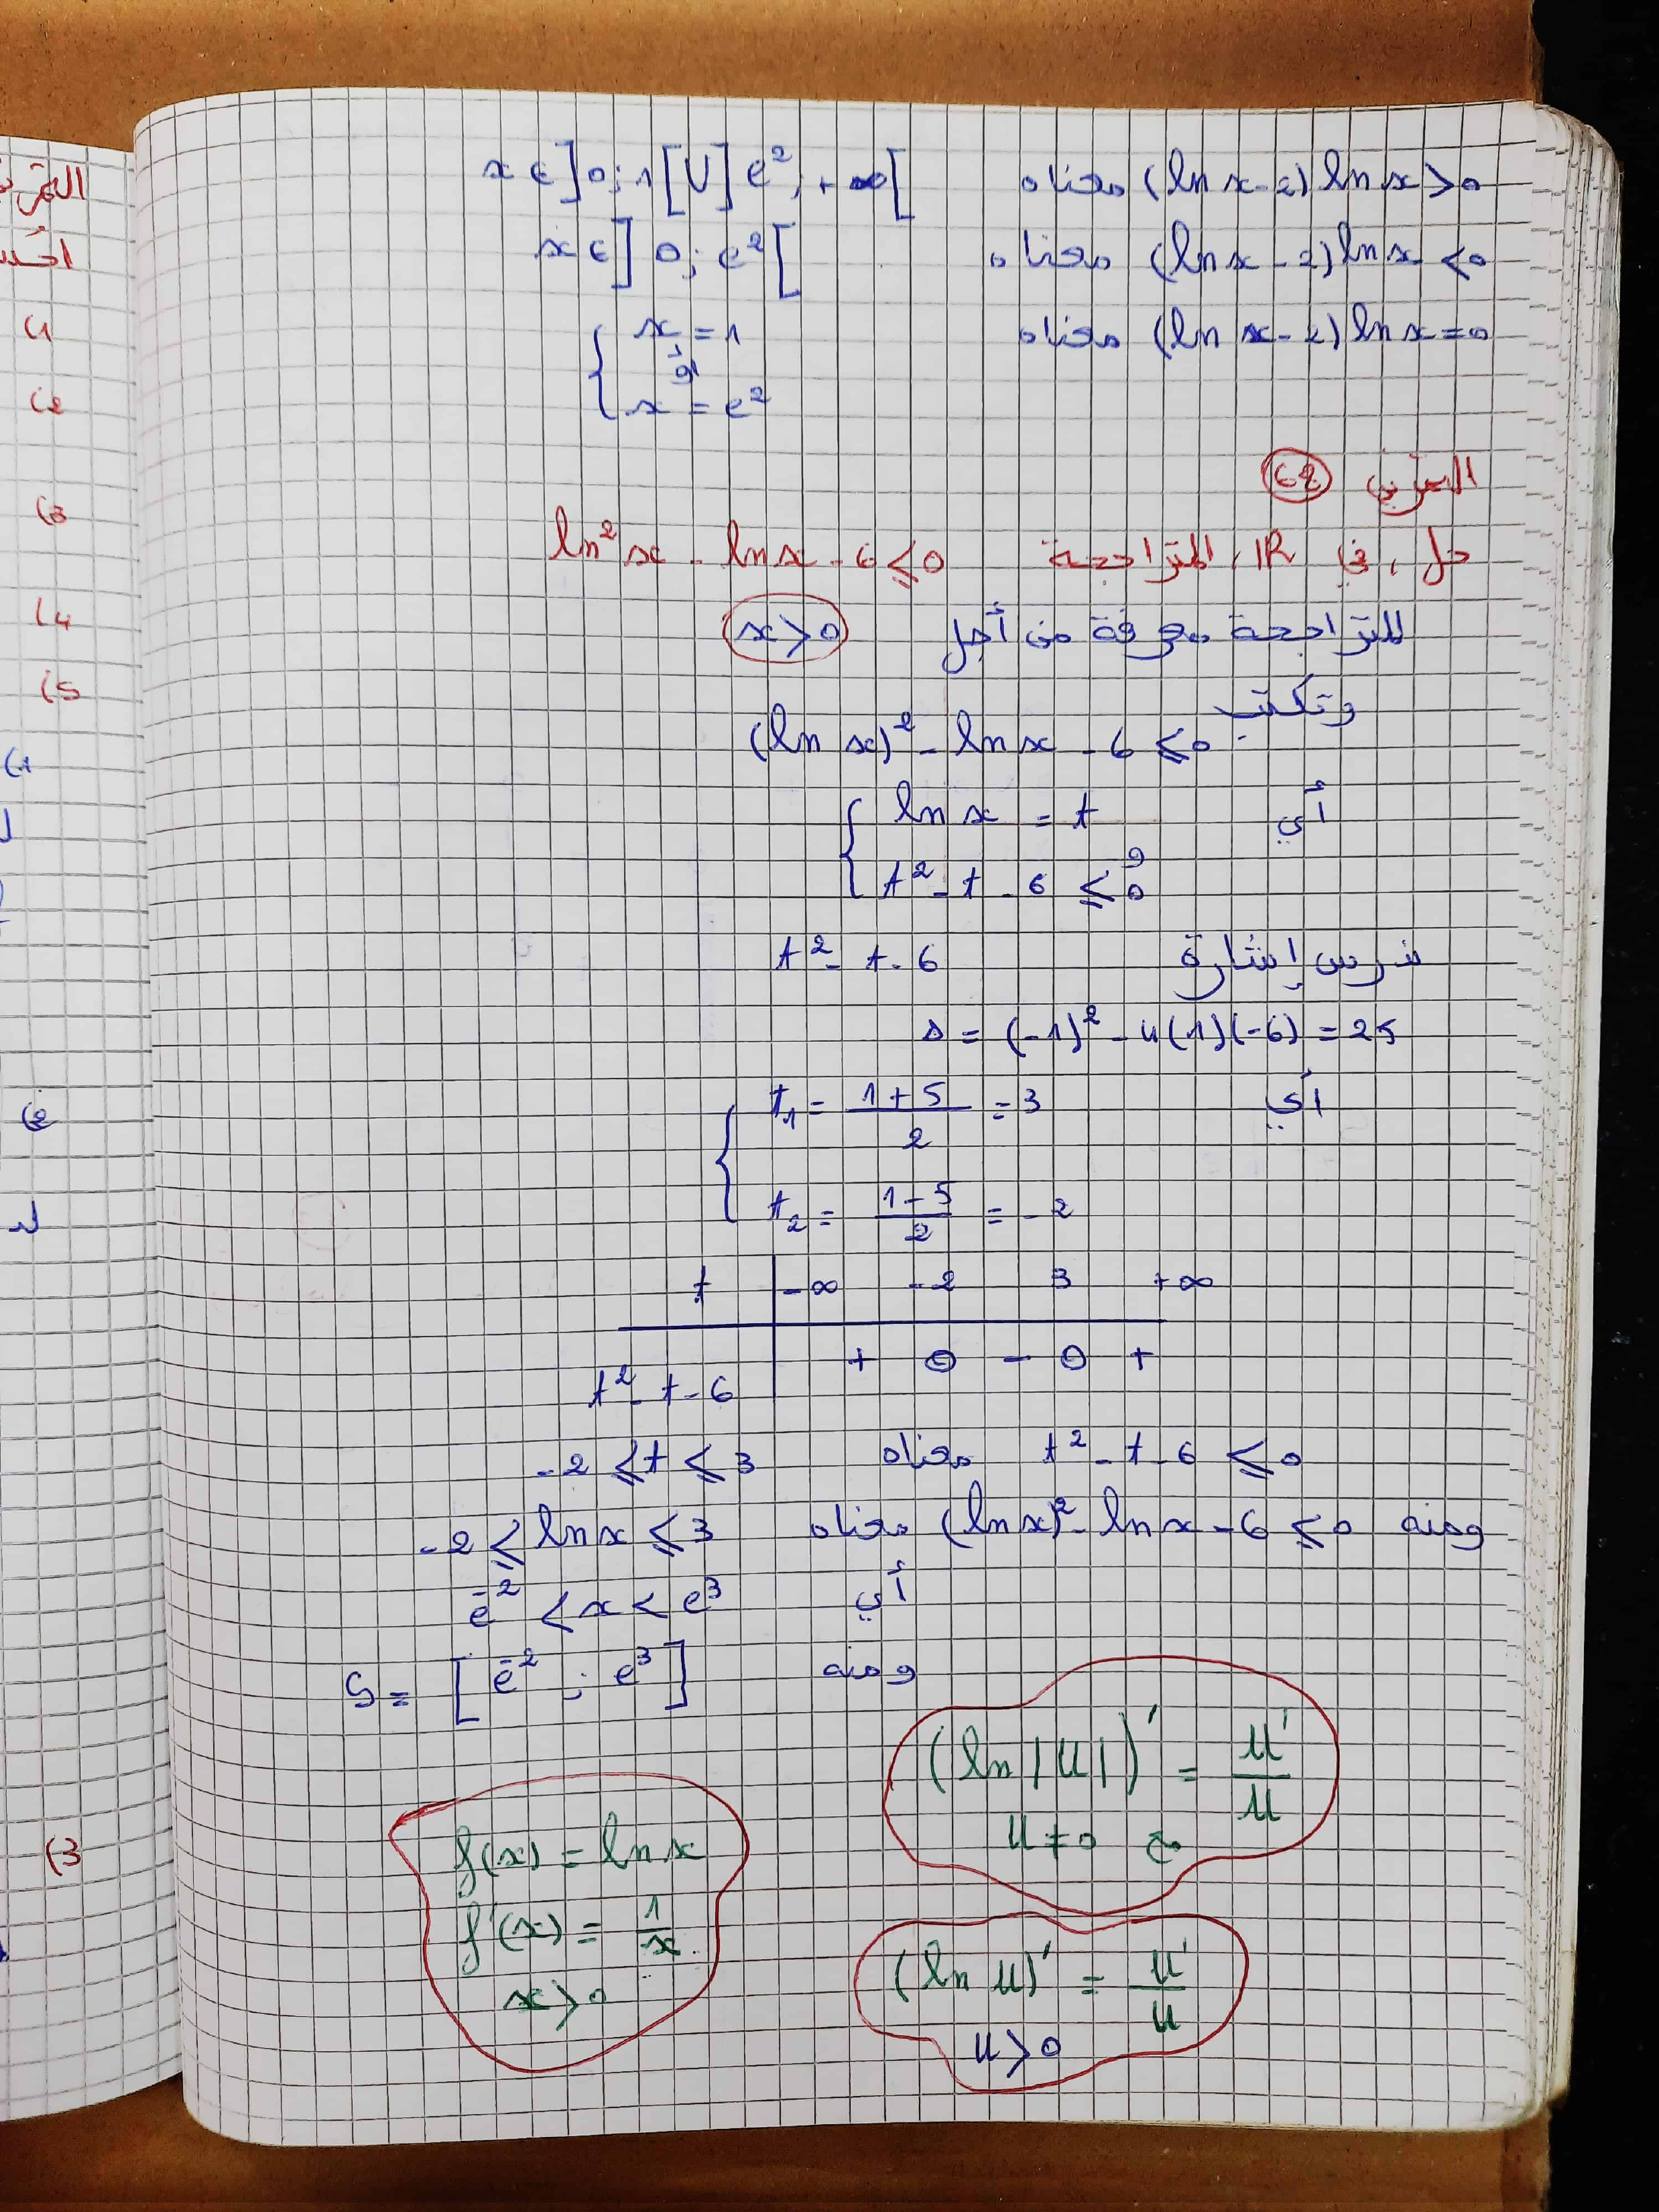 (ln x - 2) ln x > 0 معناه x ∈ ]0; 1[ U ] e², +∞[
(ln x - 2) ln x < 0 معناه x ∈ ] 0; e² [
(ln x - 2) ln x = 0 معناه { x = 1
أو
x = e²
التمرين
حل، في IR، المتراجحة ln² x - ln x - 6 ⩽ 0
المتراجحة معرفة من أجل x > 0
وتكتب
(ln x)² - ln x - 6 ⩽ 0
أي { ln x = t
و
t² - t - 6 ⩽ 0
ندرس إشارة t² - t - 6
Δ = (-1)² - 4(1)(-6) = 25
أي { t₁ = (1+5)/2 = 3
t₂ = (1-5)/2 = -2
t | -∞ -2 3 +∞
t² - t - 6 | + 0 - 0 +
t² - t - 6 ⩽ 0 معناه -2 ⩽ t ⩽ 3
ومنه (ln x)² - ln x - 6 ⩽ 0 معناه -2 ⩽ ln x ⩽ 3
أي e⁻² < x < e³
ومنه S = [ e⁻² ; e³ ]
(ln |u|)' = u'/u
مع u ≠ 0
f(x) = ln x
f'(x) = 1/x
x > 0
(ln u)' = u'/u
u > 0
(1
(2
(3
(4
(5
(1
(2
(3